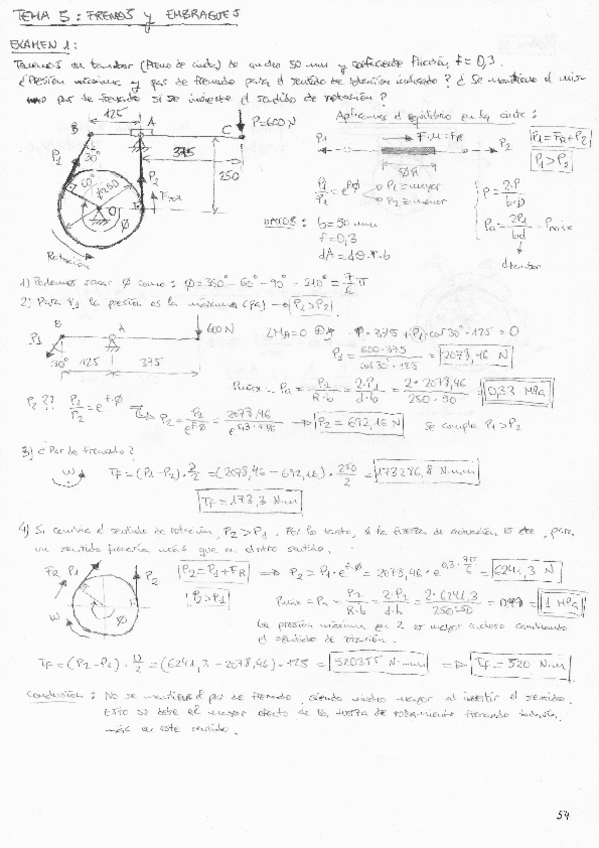 TEMA 5: FRENOS y EMBRAGUES
EXAMEN 1:
Tenemos un tambor (freno de cinta) de ancho 50 mm y coeficiente fricción, f = 0,3.
¿Presión máxima y par de frenado para el sentido de rotación indicado? ¿Se mantiene el mismo par de frenado si se invierte el sentido de rotación?
125
B A C P=600N
P1 30° 375 250
60° ø250 P2 FR2
O Ø
Rotación
Aplicamos el equilibrio en la cinta:
P1 F·μ = FR P2
P1 = FR + P2
P1 > P2
P1/P2 = e^fØ P1 = mayor P2 = menor
P = 2·P/b·D
Pa = 2P1/b·d = Pmáx
d tambor
DATOS: b = 50 mm
f = 0,3
dA = dθ·r·b
1) Podemos sacar Ø como: Ø = 360° - 60° - 90° = 210° = 7/6 π
2) Para P1 la presión es la máxima (Pa) → P1 > P2
B A 600 N
P1 30° 125 375
ΣMA = 0 -P·375 + P1·cos30°·125 = 0
P1 = 600·375/cos30°·125 = 2078,46 N
Pmáx = Pa = P1/R·b = 2·P1/d·b = 2·2078,46/250·50 = 0,33 MPa
P2?? P1/P2 = e^f·Ø ⇒ P2 = P1/e^f·Ø = 2078,46 → P2 = 692,16 N Se cumple P1 > P2
3) ¿Par de frenado?
ω TF = (P1-P2)·D/2 = (2078,46 - 692,16)·250/2 = 173286,8 N·mm
TF = 173,3 N·m
4) Si cambia el sentido de rotación, P2 > P1. Por lo tanto, si la fuerza de actuación es cte, para
un sentido frenaría más que en el otro sentido.
F2 P1 P2 ω Ø
P2 = P1 + FR ⇒ P2 = P1·e^f·Ø = 2078,46·e^0,3·7π/6 = 6241,3 N
P2 > P1 Pmáx = Pa = P2/R·b = 2·P2/d·b = 2·6241,3/250·50 = 1 MPa
La presión máxima en 2 es mayor incluso cambiando
el sentido de rotación.
TF = (P2-P1)·D/2 = (6241,3 - 2078,46)·125 = 520355 N·mm ⇒ TF = 520 N·m
Conclusión: No se mantiene el par de frenado, siendo mucho mayor al invertir el sentido.
Esto se debe al mayor efecto de la fuerza de rozamiento
más en este sentido.
54